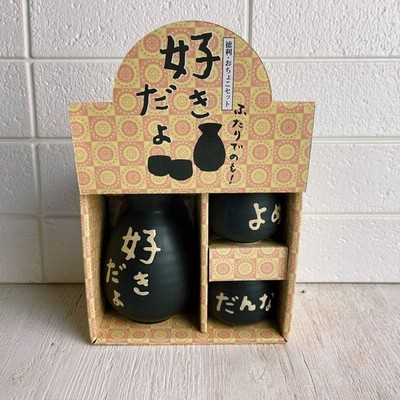 徳利・おちょこセット
好き
だよ
ふたりでのも!
好き
だよ
よめ
だんな